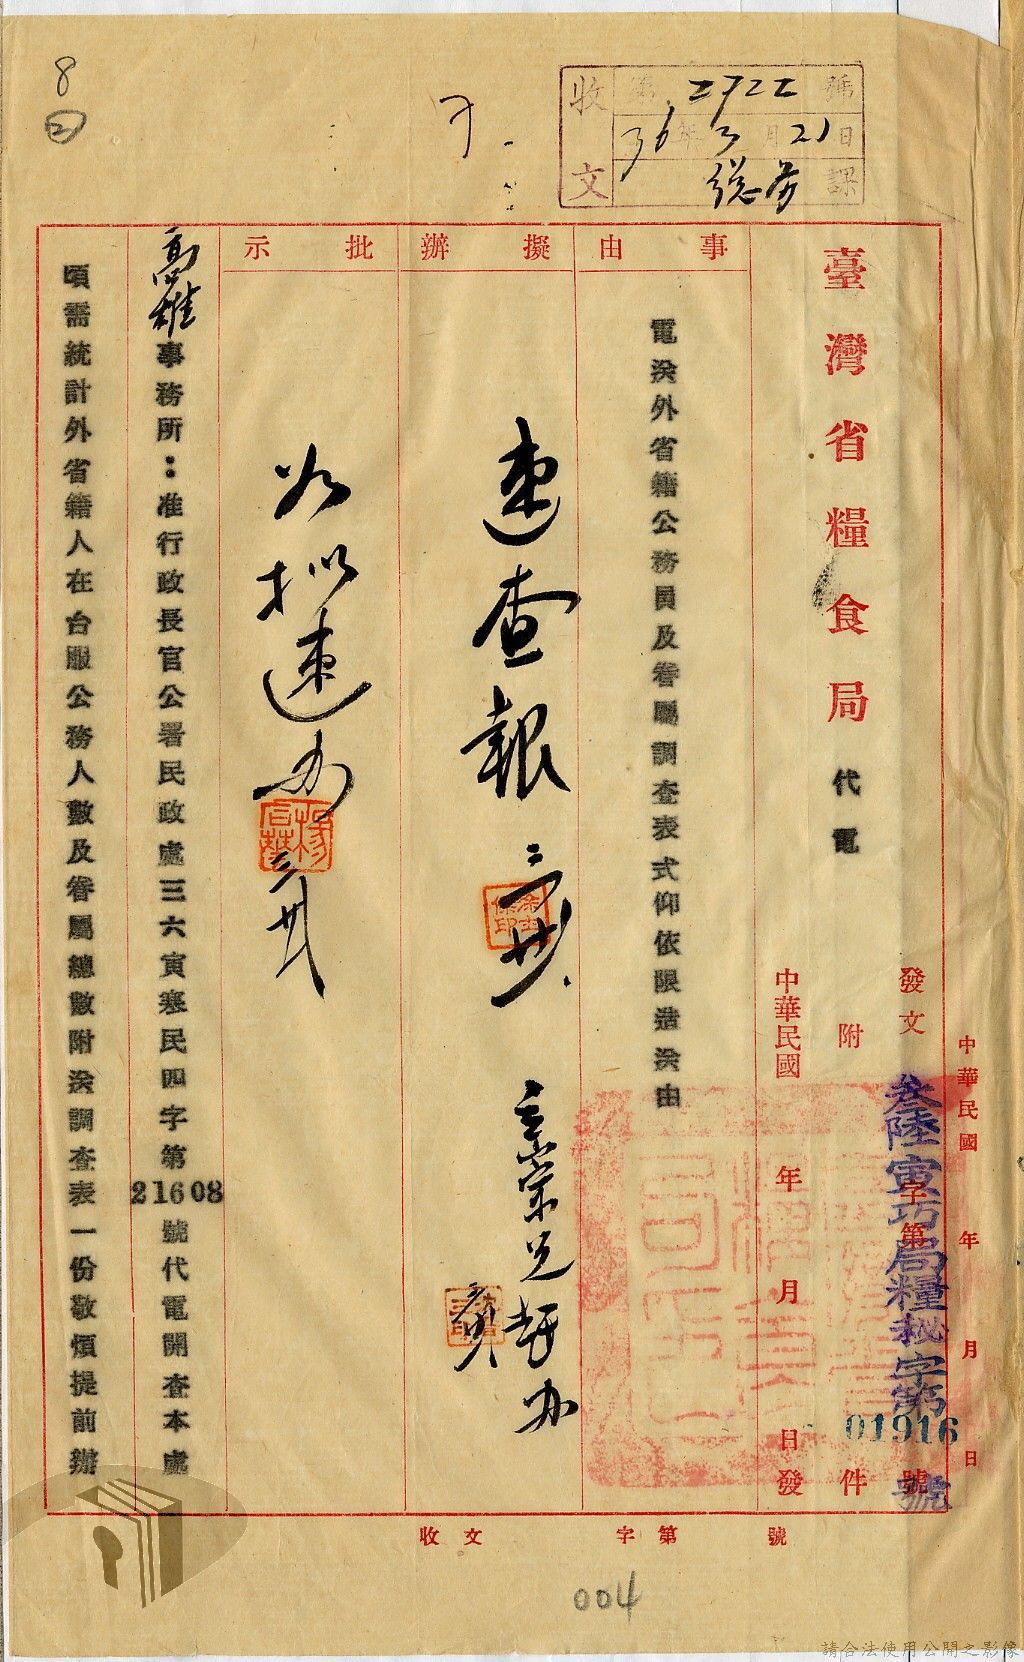 8
②
收文
第2922號
36年3月21日
總務課
臺灣省糧食局代電
中華民國 年 月 日
發文 字第 號
叁陸寅巧局糧秘字第01916號
附 件
中華民國 年 月 日發
事由
電送外省籍公務員及眷屬調查表式仰依限造送由
擬辦
速查報
批示
如拟速办
高雄事務所：准行政長官公署民政處三六寅寒民四字第21608號代電開查本處
頃需統計外省籍人在台服公務人數及眷屬總數附送調查表一份敬煩提前辦
收文 字第 號
004
請合法使用公開之影像